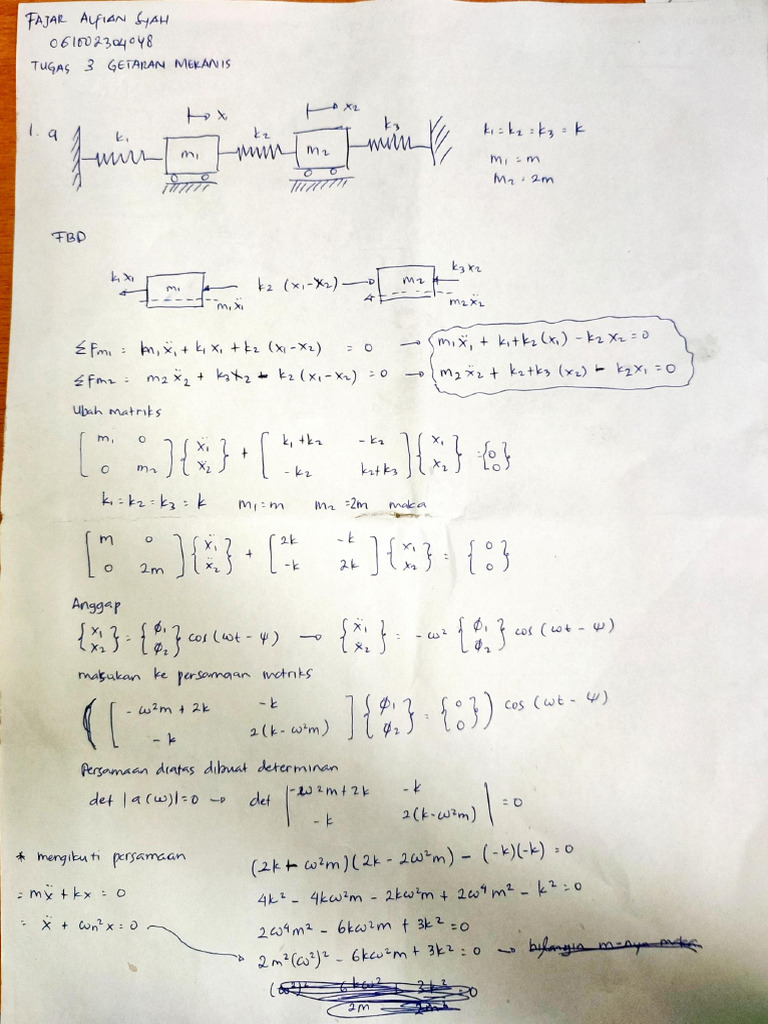 FAJAR ALFIAN SYAH
061002304048
TUGAS 3 GETARAN MEKANIS
1. a
k₁ m₁ k₂ m₂ k₃
x x₂
k₁ = k₂ = k₃ = k
m₁ = m
M₂ = 2m
FBD
k₁x₁ m₁ m₁ẍ₁ k₂ (x₁-x₂) m₂ k₃x₂ m₂ẍ₂
ΣFm₁ = m₁ẍ₁ + k₁x₁ + k₂ (x₁-x₂) = 0 → m₁ẍ₁ + k₁+k₂(x₁) - k₂x₂ = 0
ΣFm₂ = m₂ẍ₂ + k₃x₂ - k₂(x₁-x₂) = 0 → m₂ẍ₂ + k₂+k₃ (x₂) - k₂x₁ = 0
Ubah matriks
[m₁ 0; 0 m₂]{ẍ₁; ẍ₂} + [k₁+k₂ -k₂; -k₂ k₂+k₃]{x₁; x₂} = {0; 0}
k₁ = k₂ = k₃ = k m₁ = m m₂ = 2m maka
[m 0; 0 2m]{ẍ₁; ẍ₂} + [2k -k; -k 2k]{x₁; x₂} = {0; 0}
Anggap
{x₁; x₂} = {ϕ₁; ϕ₂} cos(ωt - ψ) → {ẍ₁; ẍ₂} = -ω² {ϕ₁; ϕ₂} cos(ωt - ψ)
masukan ke persamaan matriks
([-ω²m + 2k -k; -k 2(k-ω²m)]{ϕ₁; ϕ₂} = {0; 0}) cos(ωt - ψ)
Persamaan diatas dibuat determinan
det |a(ω)| = 0 → det |-ω²m + 2k -k; -k 2(k-ω²m)| = 0
* mengikuti persamaan
= mẍ + kx = 0
= ẍ + ωn²x = 0
(2k - ω²m)(2k - 2ω²m) - (-k)(-k) = 0
4k² - 4kω²m - 2kω²m + 2ω⁴m² - k² = 0
2ω⁴m² - 6kω²m + 3k² = 0
2m²(ω²)² - 6kω²m + 3k² = 0 →